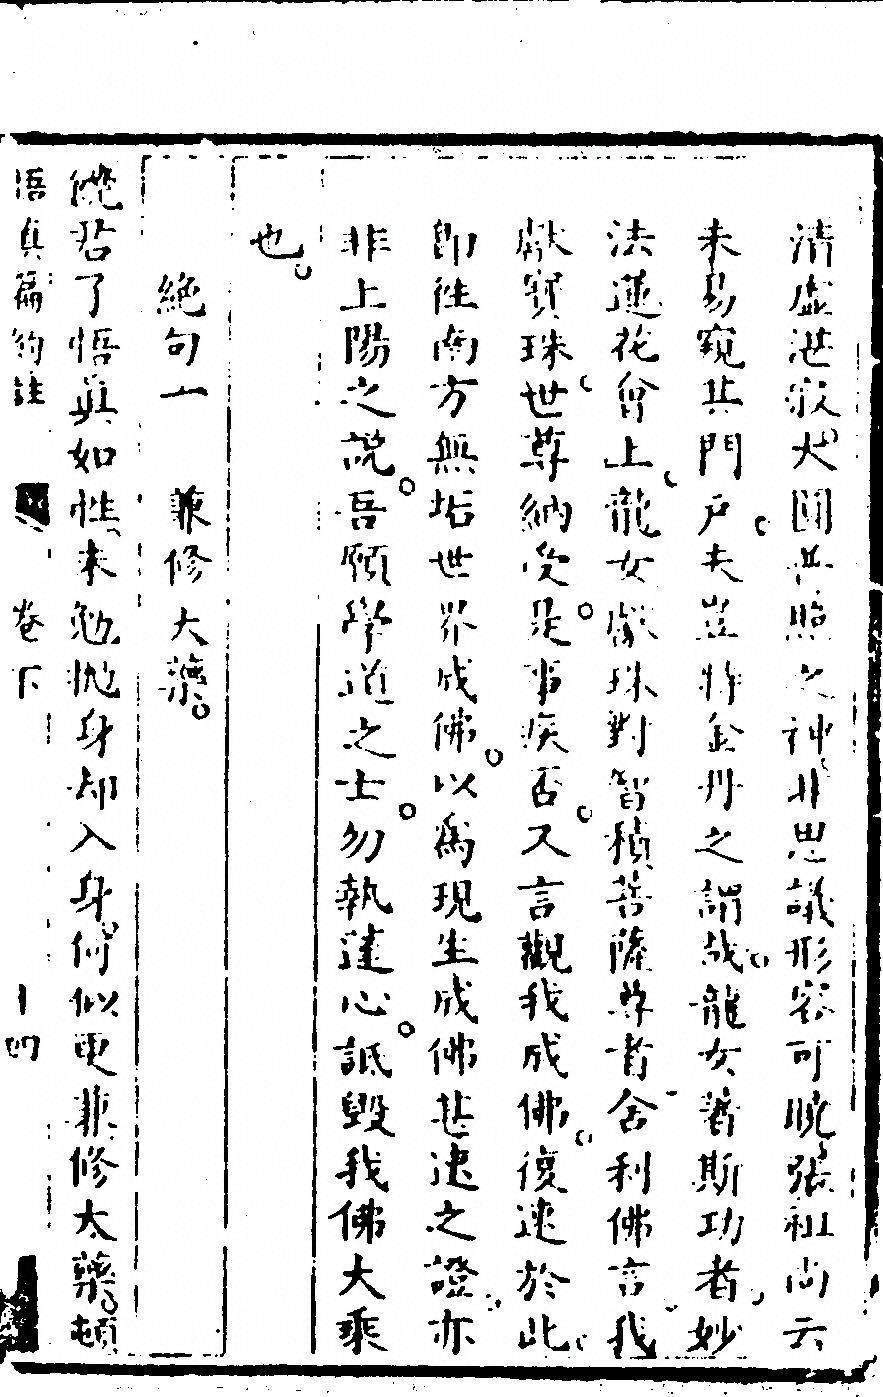 清虛湛寂大圓普照之神非思議形容可曉張祖尚云
未易窺其門戶夫豈特金丹之謂哉龍女著斯功者妙
法蓮花會上龍女獻珠對智積菩薩尊者舍利佛言我
獻寶珠世尊納受是事疾否又言觀我成佛復速於此
即往南方無垢世界成佛以為現生成佛甚速之證亦
非上陽之說吾願學道之士勿執蓬心詆毀我佛大乘
也
絕句一　兼修大藥
饒君了悟眞如性未勉拋身却入身何似更兼修大藥頓
悟真篇約註　卷下　十四